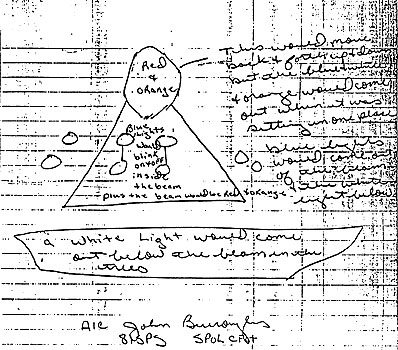 Red
&
orange
This would move
back & forth up & down
but the blue & white
& orange would come
out when it was
sitting in one place
Blue Lights
would
blink
on & off
inside
the beam
plus the beam would be Red & orange
blue lights
would come out
of the beam
a white light would come
out below the beam in the
trees
A1C John Burroughs
81 SPS